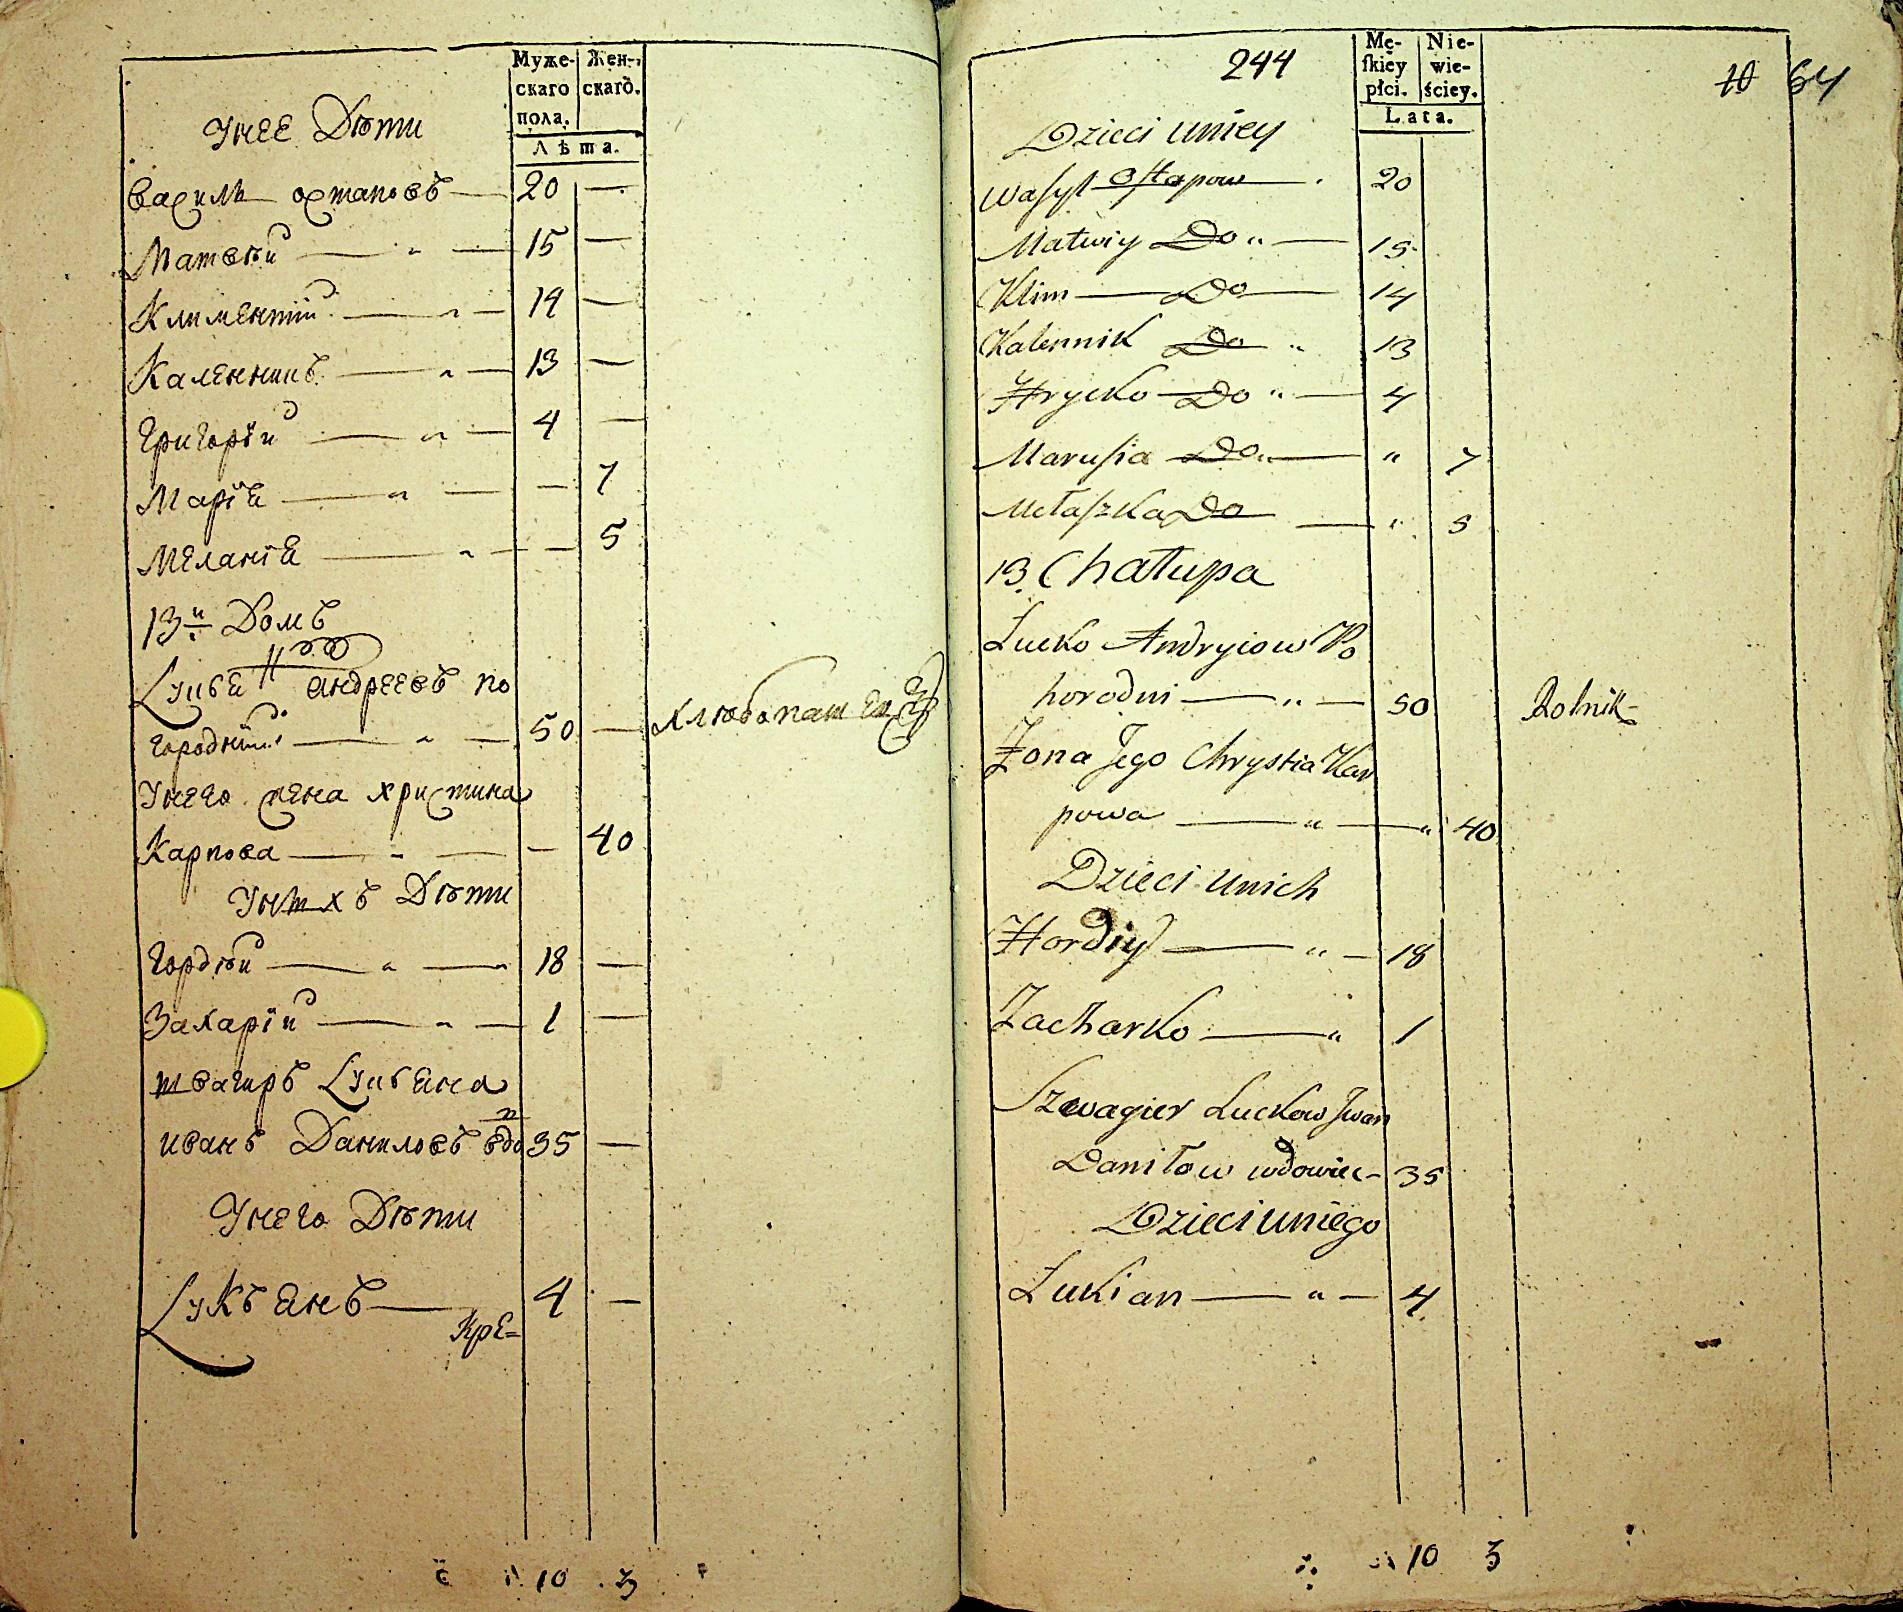 Муже-
скаго
пола.
Жен-
скаго.
Лѣта.
Унее Дѣти
Василь остаповъ 20 —
Матвѣй „ 15 —
Климентий „ 14 —
Каленникъ „ 13 —
Григорѣй „ 4 —
Марiя „ — 7
Меланiя „ — 5
13й Домъ
Луцья Андреевъ по
городнiй „ 50 — хлѣбопашецъ
Унего жена христина
Карпова „ — 40
Унихъ Дѣти
Гордѣй „ 18 —
Захарiй „ 1 —
швагиръ Луцьяна
иванъ Даниловъ вдо 35 —
Унего Дѣти
Лукьянъ 4 —
Кре=
10 3
244
Mę-
ſkiey
płci.
Nie-
wie-
ściey.
Lata.
10 64
Dzieci uniey
Waſyl Oſtapow 20
Matwiy Do „ 15
Klim Do 14
Kalennik Do „ 13
Hrycko Do „ 4
Maruſia Do „ „ 7
Mełaſzka Do „ 5
13 Chałupa
Łucko Andryiow Po
horodni „ 50 Rolnik
Żona Jego Chrystia Kar
powa „ „ 40
Dzieci unich
Hordiy „ 18
Zacharko „ 1
Szwagier Luckow Jwan
Daniłow wdowiec 35
Dzieci uniego
Łukian „ 4
10 3